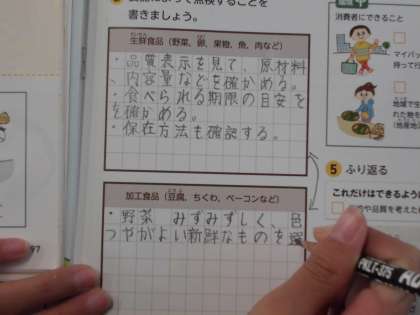 書きましょう。
生鮮食品（野菜、卵、果物、魚、肉など）
・品質表示を見て、原材料
、内容量などを確かめる。
・食べられる期限の目安を
を確かめる。
・保在方法も確認する。
加工食品（豆腐、ちくわ、ベーコンなど）
・野菜 みずみずしく、色
つやがよい新鮮なものを選
消費者にできること
マイバッ
持って
地域で生
地産地
5 ふり返る
これだけはできるように
や品質を考え
97